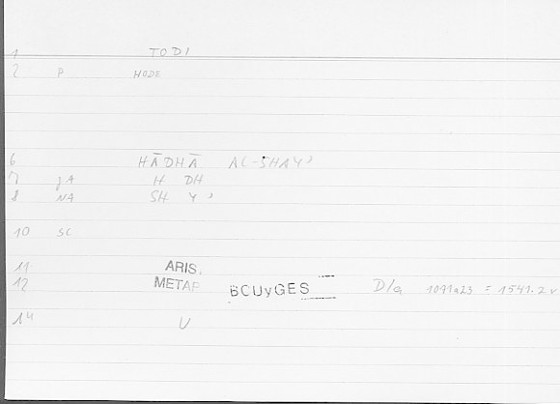 1 TODI
2 P HODE
6 HĀDHĀ AL-SHAY'
7 JA H DH
8 NA SH Y '
10 SC
11 ARIS.
12 METAP BCUyGES D/a 1071a23 = 1541.2
14 U